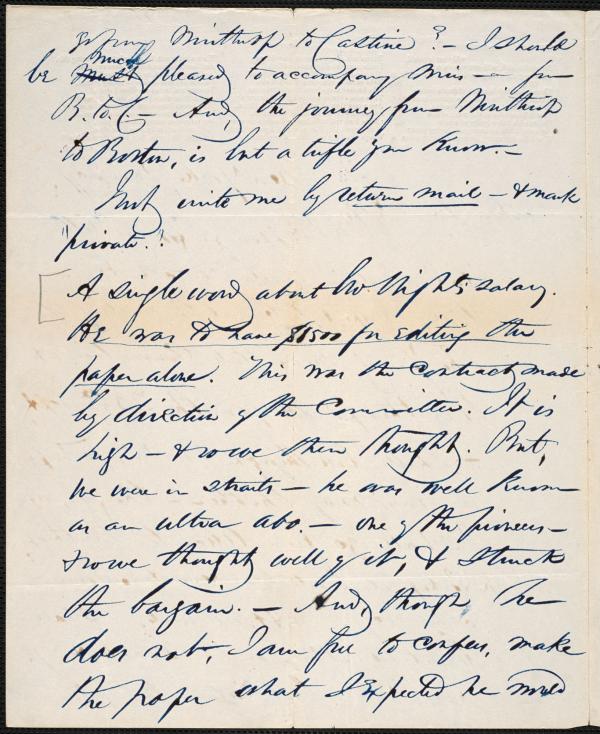 going Winthrop to Castine? - I should
be much pleased to accompany Miss - from
B. to C. - And, the journey from Winthrop
to Boston, is but a trifle you know. -
Just write me by return mail - & mark
"private."
A single word about bro. Wright's salary.
He was to have $1500 for editing the
paper alone. This was the contract made
by direction of the Committee. It is
high - & so we then thought. But,
we were in straits - he was well known
as an ultra abo. - one of the pioneers -
& so we thought well of it, & struck
the bargain. - And, though he
does not, I am free to confess, make
the paper what I expected he would